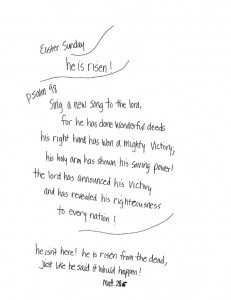 Easter Sunday
he is risen!
psalm 98
Sing a new song to the lord,
for he has done wonderful deeds
his right hand has won a mighty victory,
his holy arm has shown his saving power!
the lord has announced his victory
and has revealed his righteousness
to every nation!
he isn't here! he is risen from the dead,
just like he said it would happen!
matt. 28:6